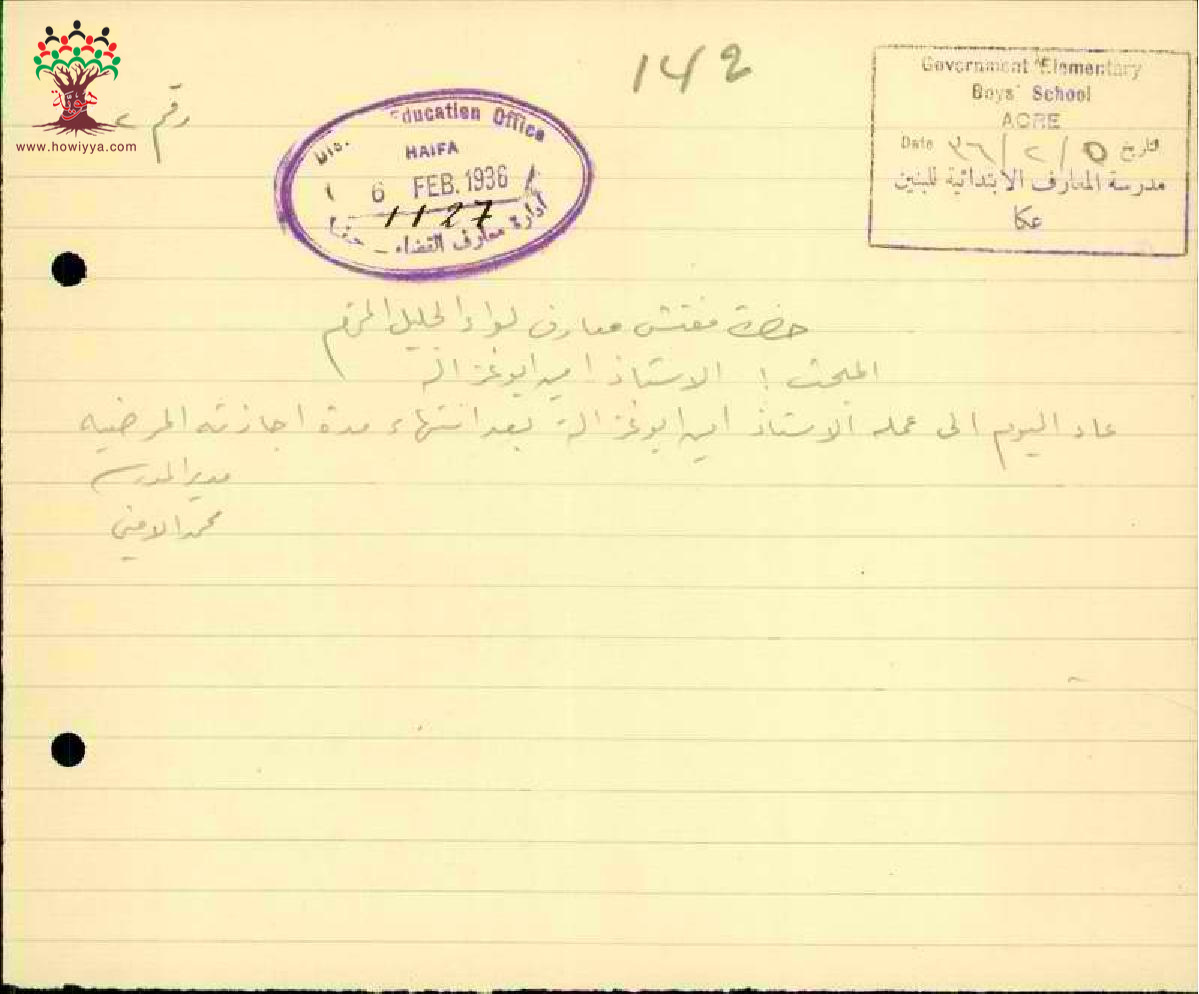 هوية
www.howiyya.com
142
رقم ٢
Dis. Education Office
HAIFA
6 FEB. 1936
1127
أدارة معارف القضاء - حيفا
Government Elementary
Boys' School
ACRE
Date ٣٦/٢/٥ تاريخ
مدرسة المعارف الابتدائية للبنين
عكا
حضرة مفتش معارف لواء الجليل المحترم
المبحث : الاستاذ امين ابو غزالة
عاد اليوم الى عمله الاستاذ امين ابو غزالة بعد انتهاء مدة اجازته المرضيه
مدير المدرسة
محمد الامين